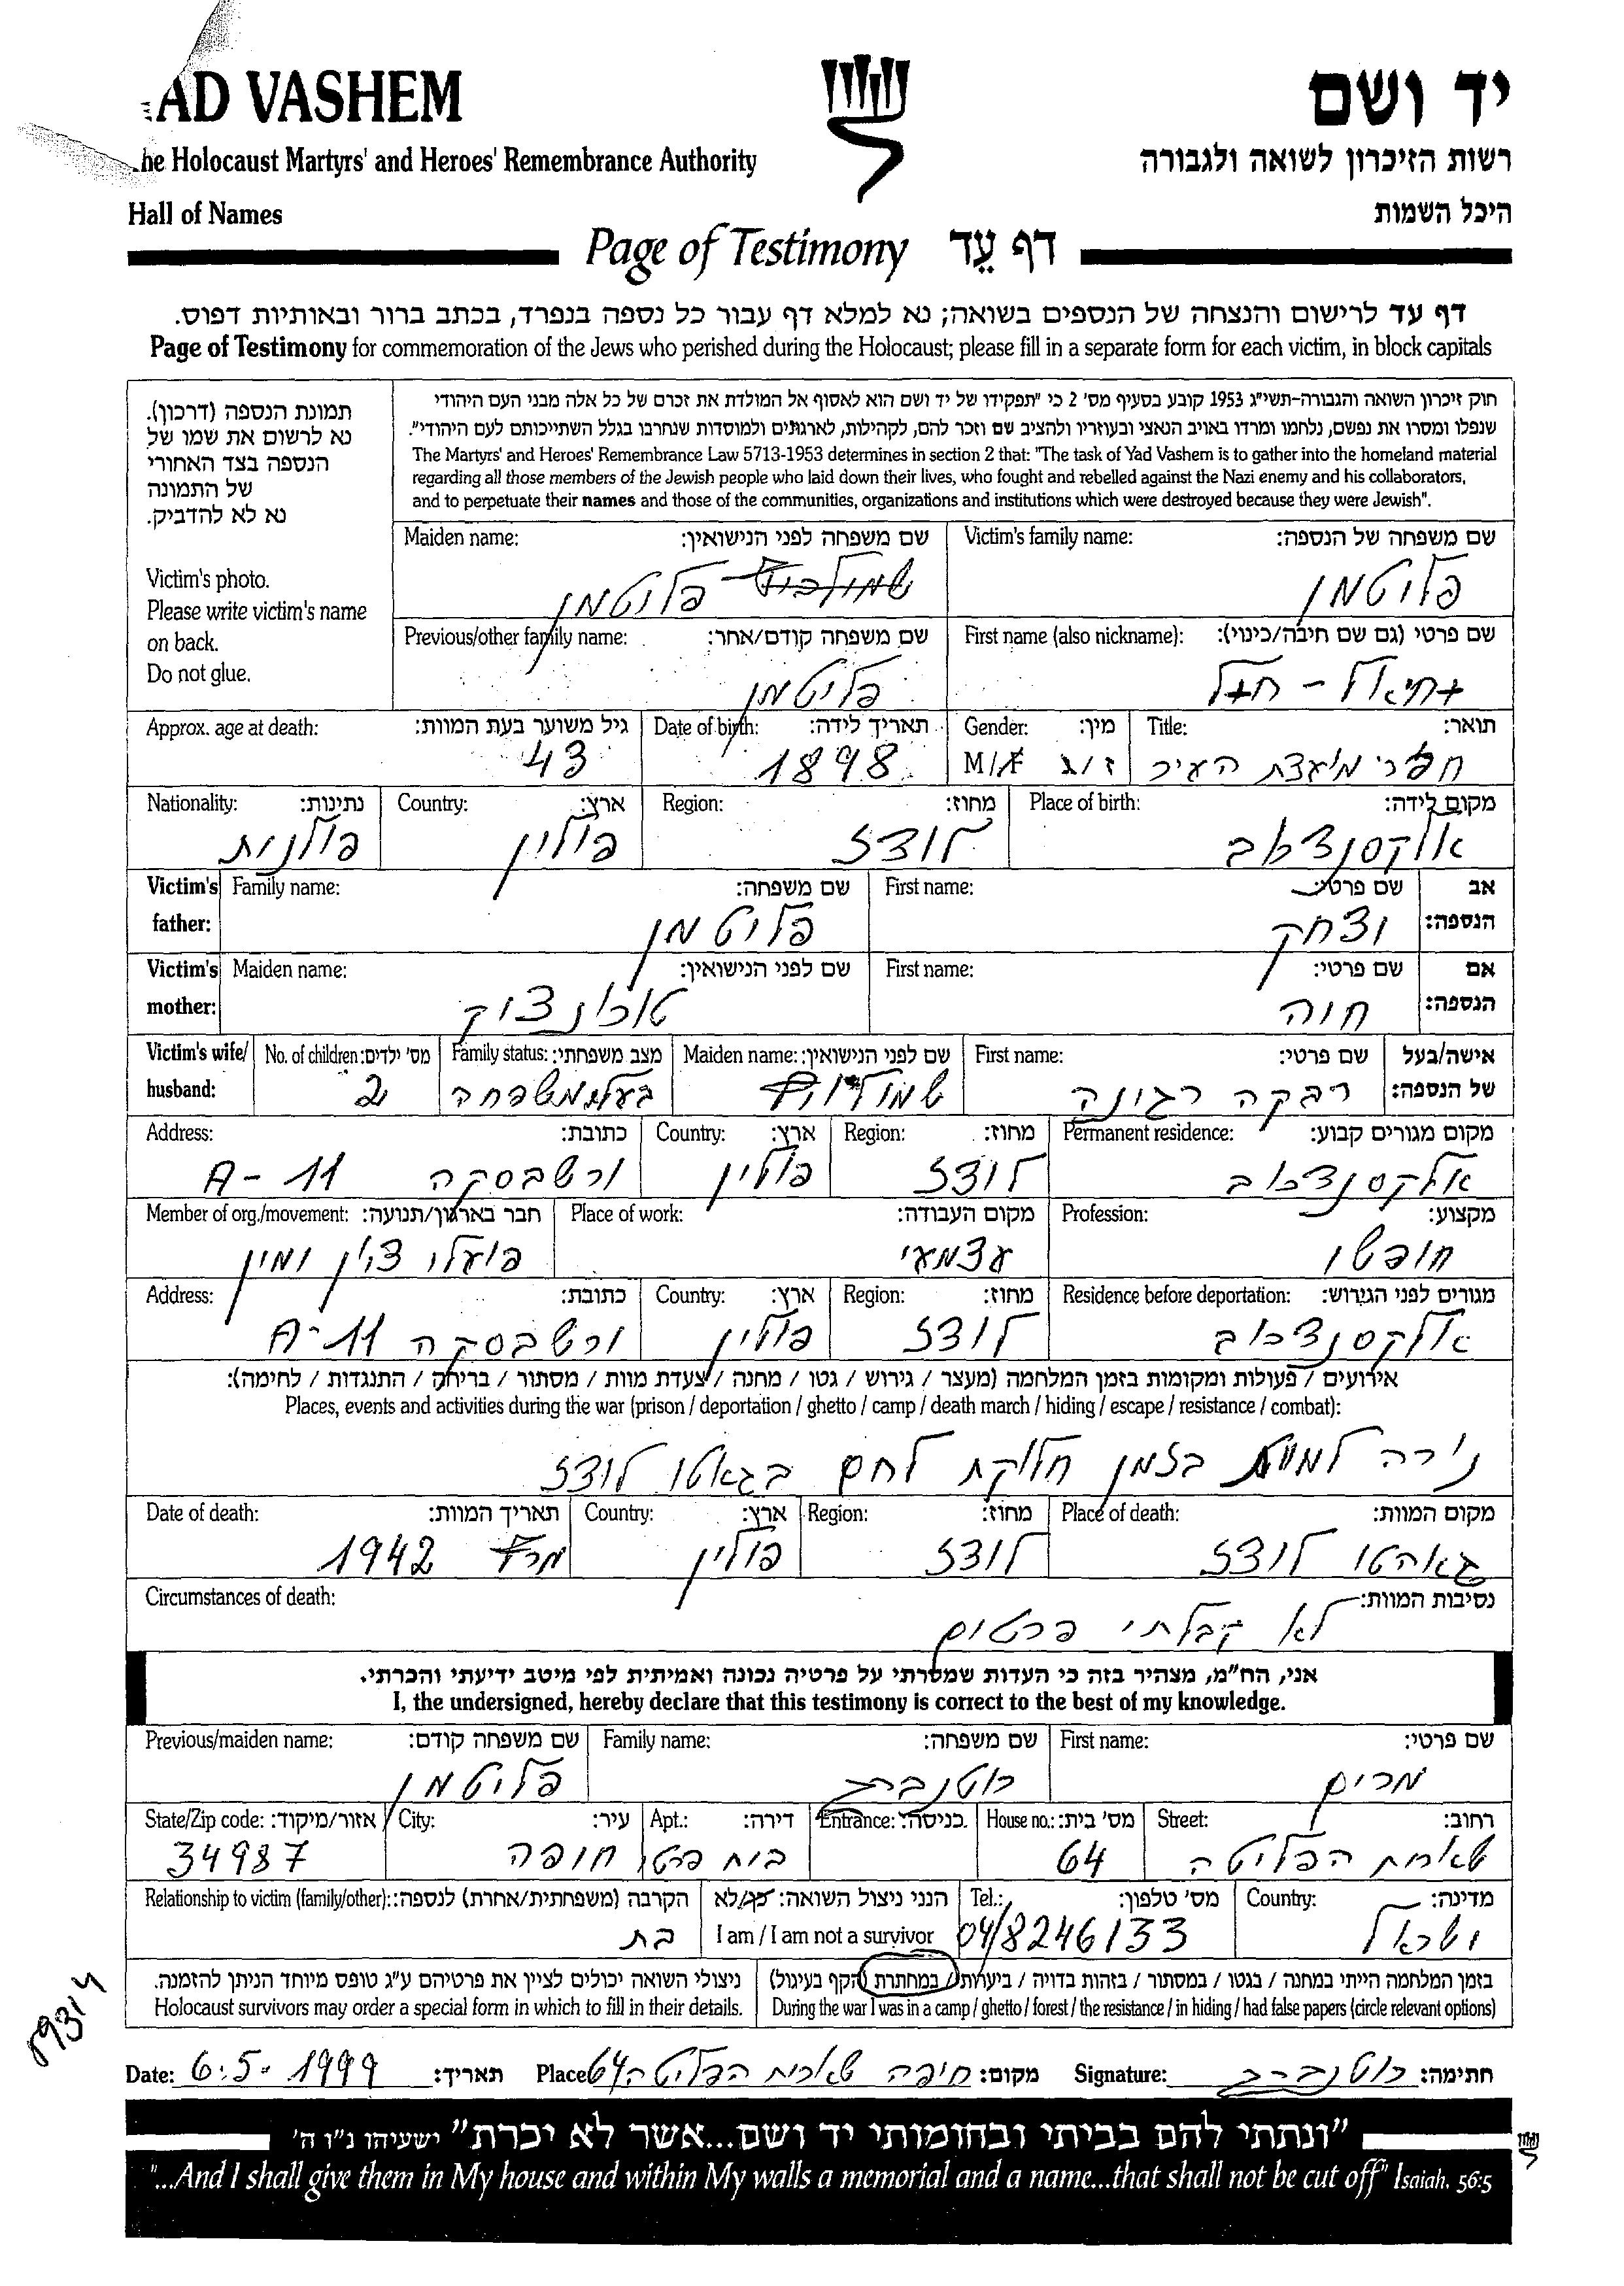 AD VASHEM
יד ושם
he Holocaust Martyrs' and Heroes' Remembrance Authority
רשות הזיכרון לשואה ולגבורה
Hall of Names
היכל השמות
Page of Testimony דף עֵד
דף עד לרישום והנצחה של הנספים בשואה; נא למלא דף עבור כל נספה בנפרד, בכתב ברור ובאותיות דפוס.
Page of Testimony for commemoration of the Jews who perished during the Holocaust; please fill in a separate form for each victim, in block capitals
תמונת הנספה (דרכון).
נא לרשום את שמו של
הנספה בצד האחורי
של התמונה
נא לא להדביק.
Victim's photo.
Please write victim's name
on back.
Do not glue.
חוק זיכרון השואה והגבורה-תשי"ג 1953 קובע בסעיף מס' 2 כי "תפקידו של יד ושם הוא לאסוף אל המולדת את זכרם של כל אלה מבני העם היהודי
שנפלו ומסרו את נפשם, נלחמו ומרדו באויב הנאצי ובעוזריו ולהציב שם וזכר להם, לקהילות, לארגונים ולמוסדות שנחרבו בגלל השתייכותם לעם היהודי".
The Martyrs' and Heroes' Remembrance Law 5713-1953 determines in section 2 that: "The task of Yad Vashem is to gather into the homeland material
regarding all those members of the Jewish people who laid down their lives, who fought and rebelled against the Nazi enemy and his collaborators,
and to perpetuate their names and those of the communities, organizations and institutions which were destroyed because they were Jewish".
שם משפחה של הנספה: Victim's family name:
פליטמן
שם משפחה לפני הנישואין: Maiden name:
פליטמן
שם פרטי (גם שם חיבה/כינוי): First name (also nickname):
שם משפחה קודם/אחר: Previous/other family name:
פליטמן
תואר: Title:
חבר מועצת העיר
מין: Gender:
ז/נ M/F
תאריך לידה: Date of birth:
1898
גיל משוער בעת המוות: Approx. age at death:
43
מקום לידה: Place of birth:
אלקסנדרוב
מחוז: Region:
לודז
ארץ: Country:
פולין
נתינות: Nationality:
פולנית
אב הנספה: Victim's father:
שם פרטי: First name:
יצחק
שם משפחה: Family name:
פליטמן
אם הנספה: Victim's mother:
שם פרטי: First name:
חוה
שם לפני הנישואין: Maiden name:
אישה/בעל של הנספה: Victim's wife/ husband:
שם פרטי: First name:
רבקה רגינה
שם לפני הנישואין: Maiden name:
מצב משפחתי: Family status:
בעל משפחה
מס' ילדים: No. of children:
2
מקום מגורים קבוע: Permanent residence:
אלקסנדרוב
מחוז: Region:
לודז
ארץ: Country:
פולין
כתובת: Address:
ורשבסקה 11 - A
מקצוע: Profession:
חופשי
מקום העבודה: Place of work:
עצמאי
חבר בארגון/תנועה: Member of org./movement:
פועלי ציון ימין
מגורים לפני הגירוש: Residence before deportation:
אלקסנדרוב
מחוז: Region:
לודז
ארץ: Country:
פולין
כתובת: Address:
ורשבסקה 11 - A
אירועים / פעולות ומקומות בזמן המלחמה (מעצר / גירוש / גטו / מחנה / צעדת מוות / מסתור / בריחה / התנגדות / לחימה):
Places, events and activities during the war (prison / deportation / ghetto / camp / death march / hiding / escape / resistance / combat):
נירה למוות בזמן חלוקת לחם בגאטו לודז
מקום המוות: Place of death:
גאהטו לודז
מחוז: Region:
לודז
ארץ: Country:
פולין
תאריך המוות: Date of death:
מרץ 1942
נסיבות המוות: Circumstances of death:
לא קבלתי פרטים
אני, הח"מ, מצהיר בזה כי העדות שמסרתי על פרטיה נכונה ואמיתית לפי מיטב ידיעתי והכרתי.
I, the undersigned, hereby declare that this testimony is correct to the best of my knowledge.
שם פרטי: First name:
מרים
שם משפחה: Family name:
רוטנברג
שם משפחה קודם: Previous/maiden name:
פליטמן
רחוב: Street:
שארית הפליטה
מס' בית: House no.:
64
כניסה: Entrance:
דירה: Apt.:
בית פרטי
עיר: City:
חיפה
אזור/מיקוד: State/Zip code:
34987
מדינה: Country:
ישראל
מס' טלפון: Tel.:
04/8246133
הנני ניצול השואה: כן/לא
I am / I am not a survivor
הקרבה (משפחתית/אחרת) לנספה: Relationship to victim (family/other):
בת
בזמן המלחמה הייתי במחנה / בגטו / במסתור / בזהות בדויה / ביערות / במחתרת (הקף בעיגול)
During the war I was in a camp / ghetto / forest / the resistance / in hiding / had false papers (circle relevant options)
ניצולי השואה יכולים לציין את פרטיהם ע"ג טופס מיוחד הניתן להזמנה.
Holocaust survivors may order a special form in which to fill in their details.
89314
חתימה: רוטנברג Signature:
מקום: חיפה שארית הפליטה 64 Place
תאריך: 6.5.1999 Date:
"ונתתי להם בביתי ובחומותי יד ושם...אשר לא יכרת" ישעיהו נ"ו ה'
"...And I shall give them in My house and within My walls a memorial and a name...that shall not be cut off" Isaiah. 56:5